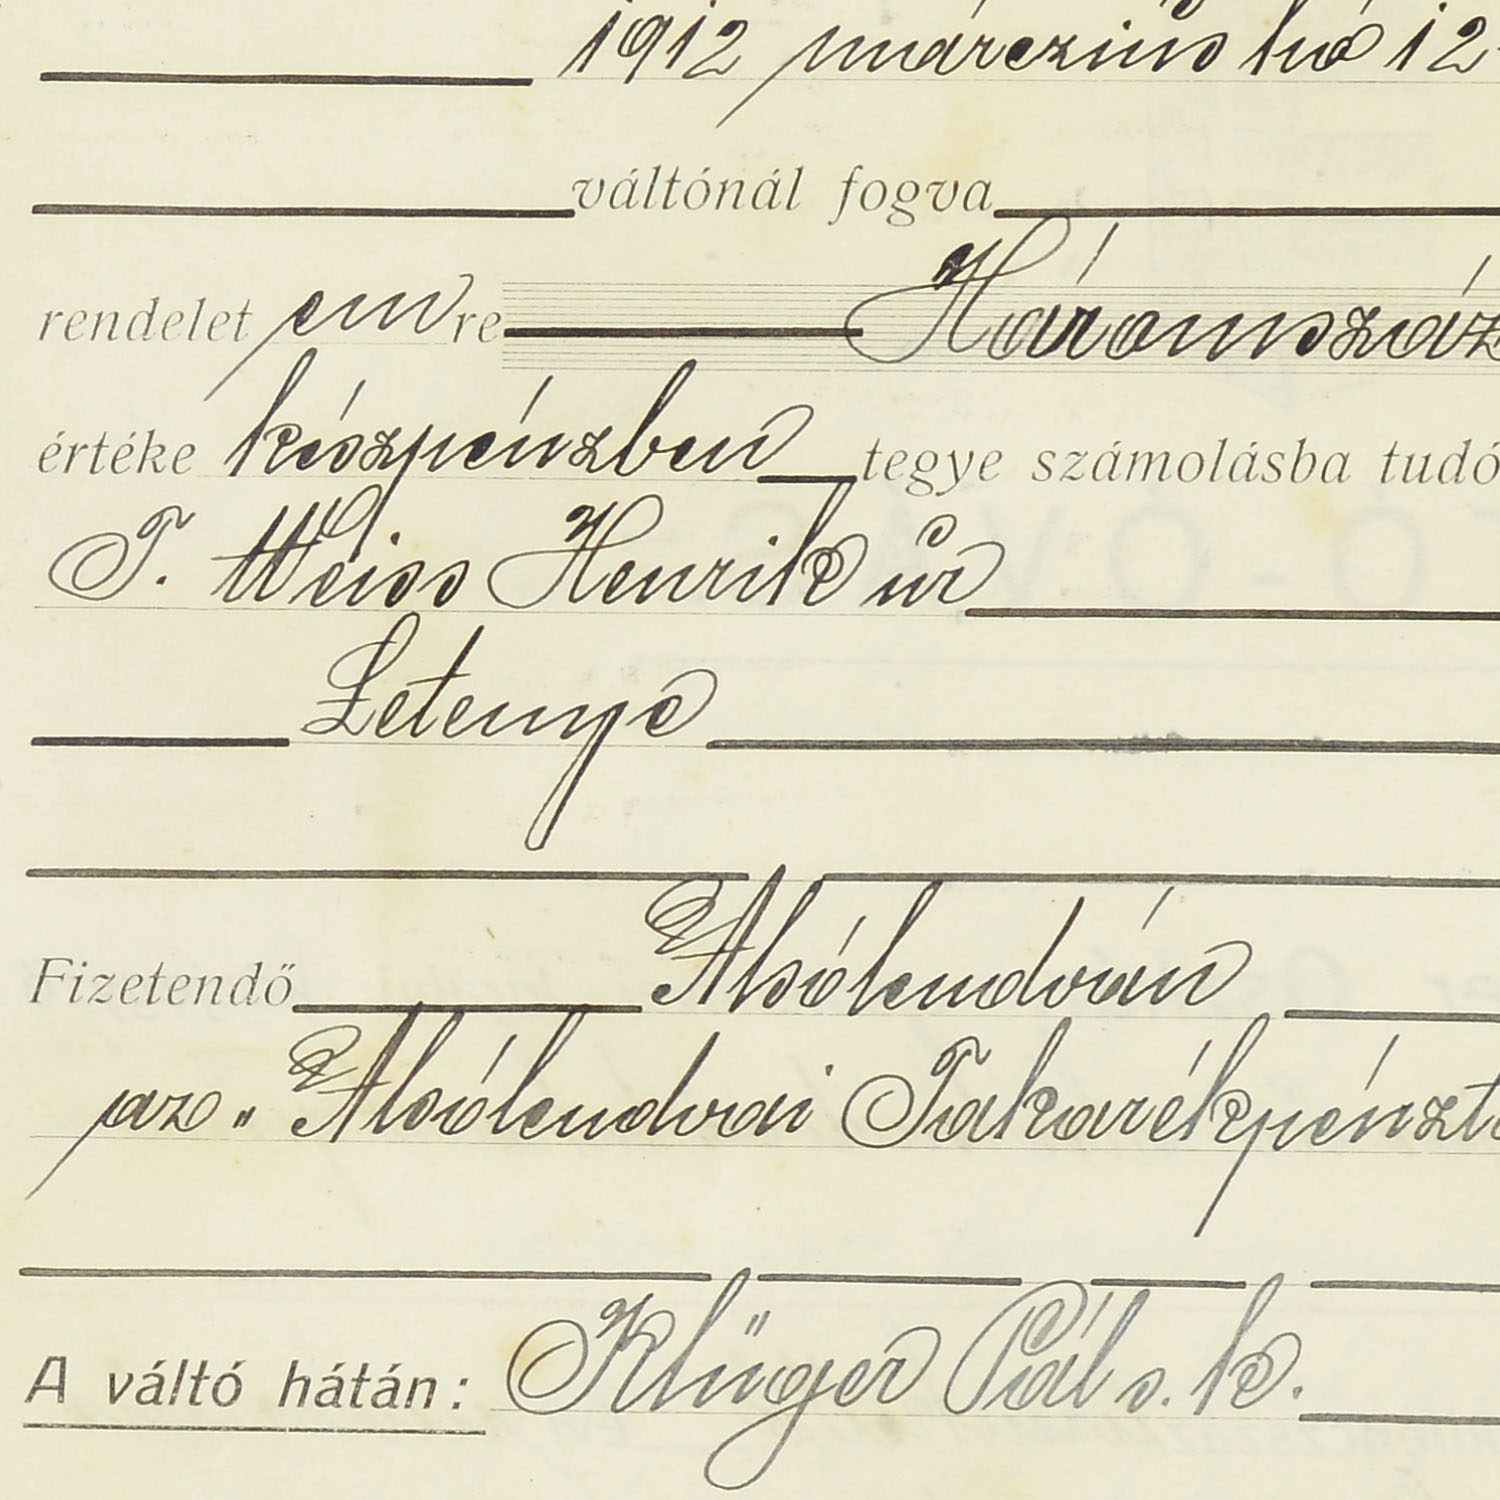 1912 márczius hó 12
váltónál fogva
rendelet em re Háromszáz
értéke készpénzben tegye számolásba tudó
T. Weiss Henrik úr
Letenye
Fizetendő Alsólendván
az „Alsólendvai Takarékpénztá
A váltó hátán: Klüger Pál s. k.